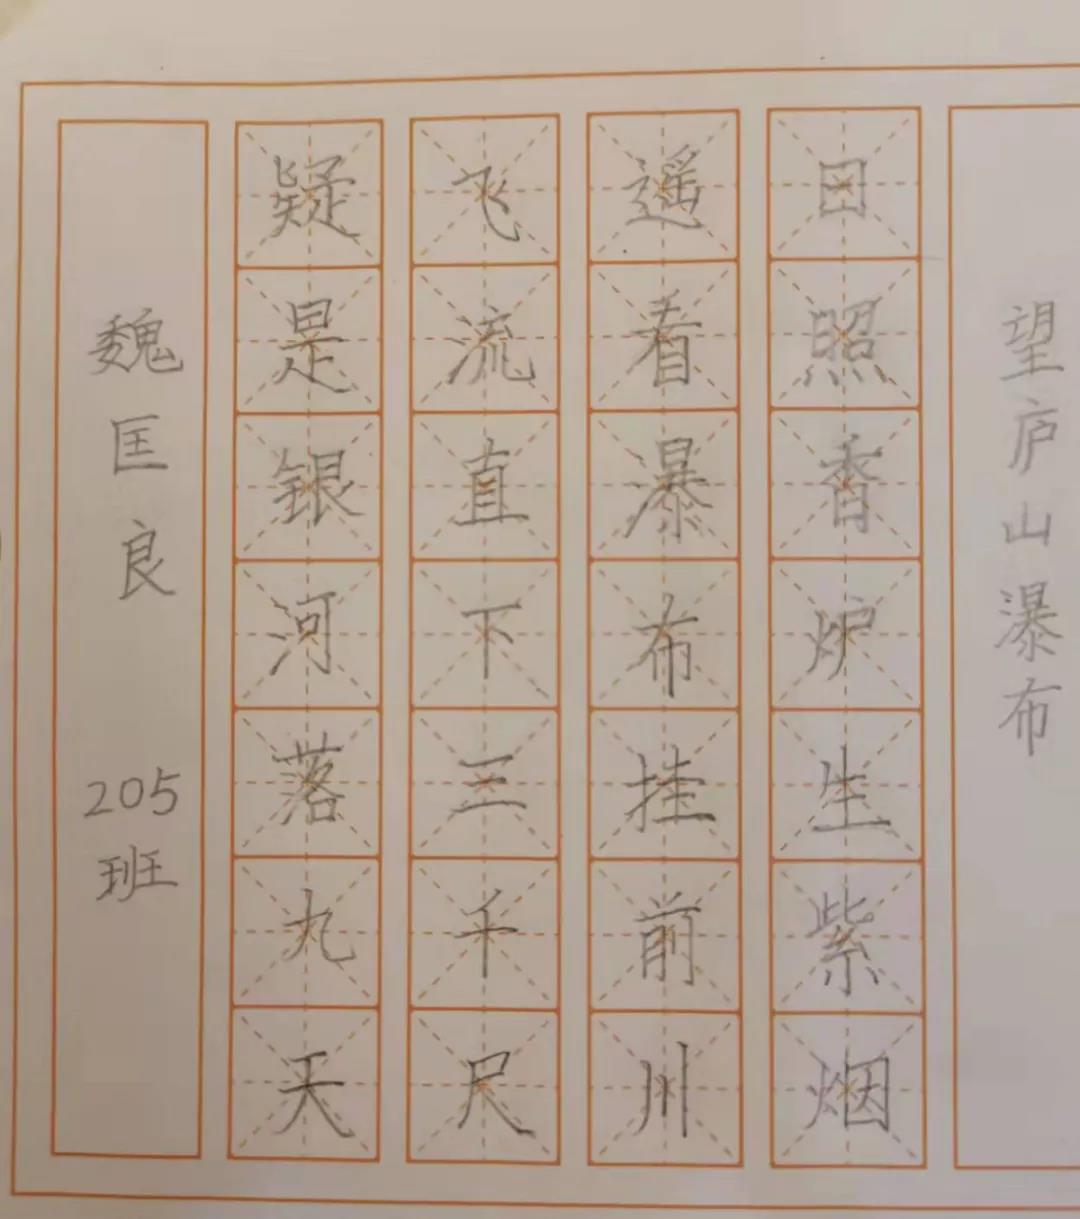 望庐山瀑布
日照香炉生紫烟
遥看暴布挂前川
飞流直下三千尺
疑是银河落九天
魏匡良 205班